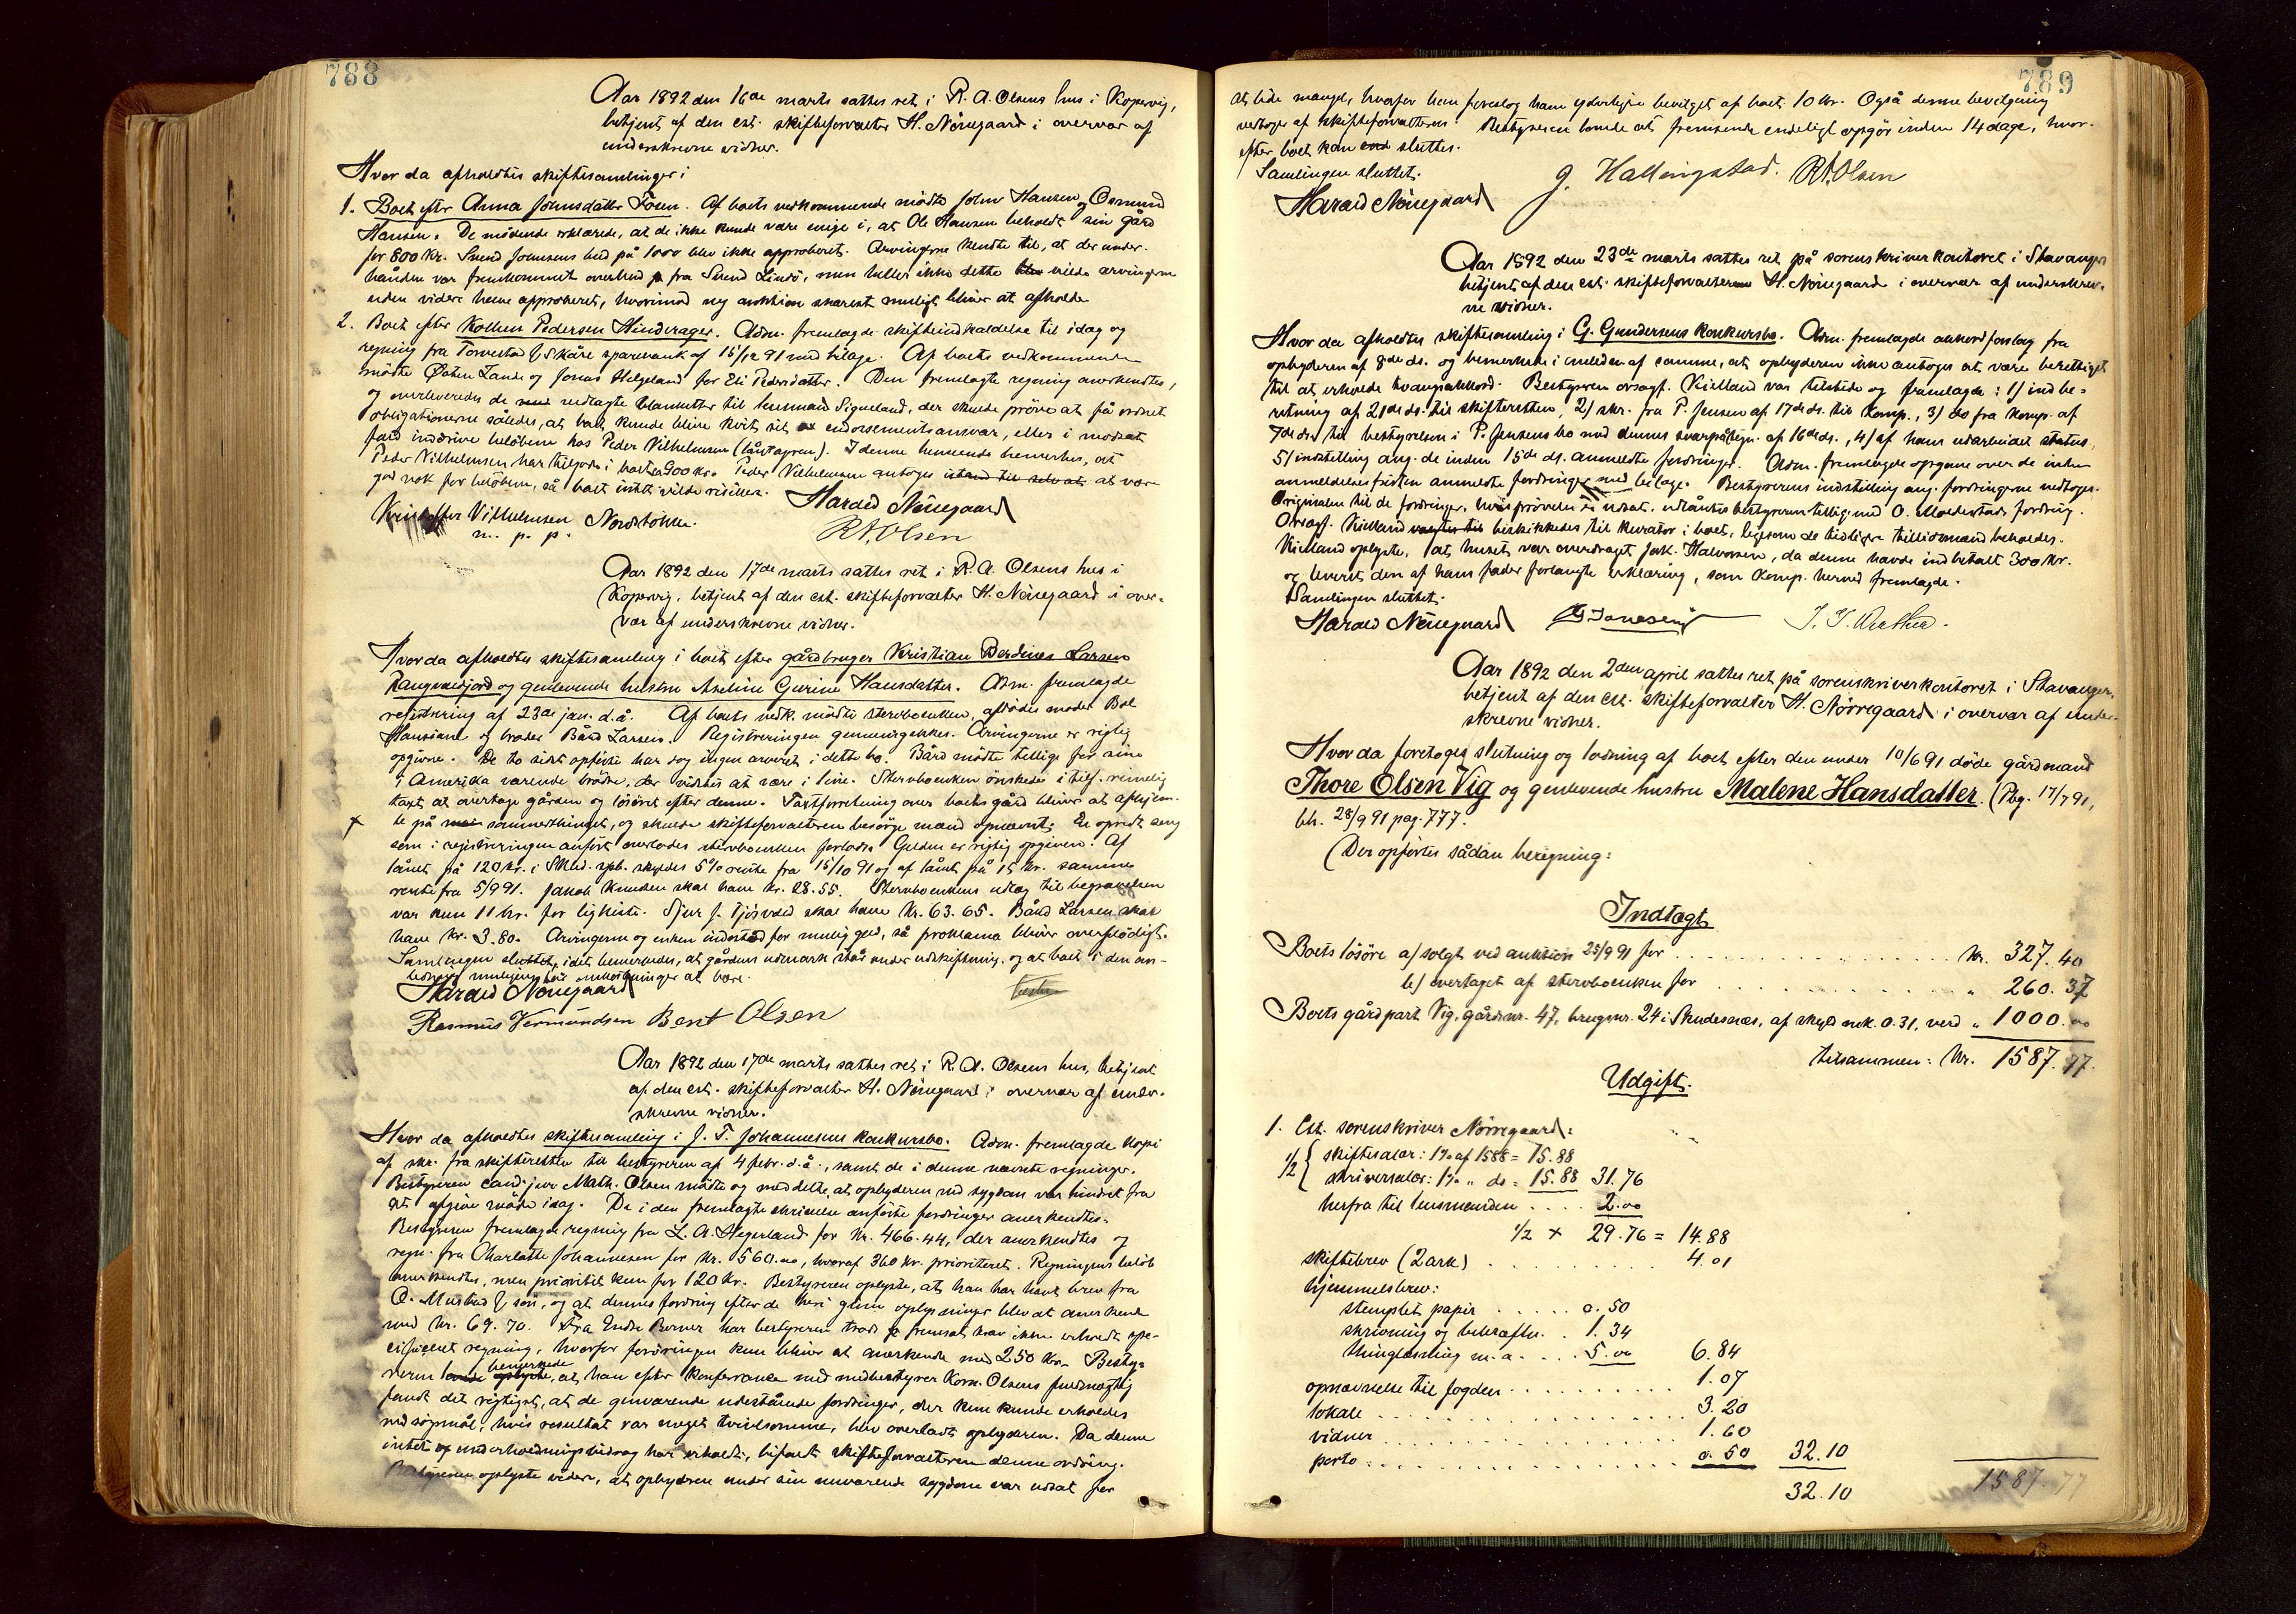 788
Aar 1892 den 16de marts sattes ret i R. A. Olsens hus i Kopervig,
betjent af den cst. skifteforvalter H. Nörregaard i overvær af
underskrevne vidner.
Hvor da afholdtes skiftesamlinger i
1. Boet efter Anna Johnsdatter Fosen. Af boets vedkommende mödte John Hansen og Osmund
Hansen. De mödende erklærede, at de ikke kunde være enige i, at Ole Hansen beholdt sin gård
for 800 kr. Svend Johnsens bud på 1000 blev ikke approberet. Arvingerne kendte til, at der under-
hånden var fremkommet overbud fra Svend Lindö, men heller ikke dette vilde arvingerne
uden videre have approberet, hvorimod ny auktion snarest muligt bliver at afholde
2. Boet efter Kolben Pedersen Hinderager. Adm. fremlagde skifteindkaldelse til idag og
regning fra Torvestad & Skåre sparebank af 15/12 91 med bilage. Af boets vedkommende
mödte Østen Lande og Jonas Helgeland for Eli Pedersdatter. Den fremlagte regning anerkendtes,
og overleveredes de vedlagte blanketter til lensmand Signeland, der skulde pröve at få ordnet
obligationerne således, at boet kunde blive kvit sit endorsementsansvar, eller i modsat
fald inddrive belöbene hos Peder Vilhelmsen (låntageren). I denne henseende bemerkes, at
Peder Vilhelmsen har tilgode i boet ca 900 kr. Peder Vilhelmsen antoges istand til selv at at være
god nok for belöbene, så boet intet vilde risikere.
Harald Nörregaard
Kristoffer Vilhelmsen Nordstokke.
m. p. p.
R. A. Olsen
Aar 1892 den 17de marts sattes ret i R. A. Olsens hus i
Kopervig, betjent af den cst. skifteforvalter H. Nörregaard i over-
vær af underskrevne vidner.
Hvor da afholdtes skiftesamling i boet efter gårdbruger Kristian Berdines Larsen
Rangvaldjord og genlevende hustru Aseline Gurine Hansdatter. Adm. fremlagde
registrering af 23de jan. d.å. Af boets vedk. mödte stervboenken, afdödes moder Bol
Hansiane og broder Bård Larsen. Registreringen gennemgikkes. Arvingerne er rigtig
opgivne. De to sidst opförte har dog ingen arveret i dette bo. Bård mödte tillige for sine
i Amerika værende brödre, der vidstes at være i live. Stervboenken önskede i tilf. rimelig
taxt at overtage gården og lösöret efter denne. Taxtforretning over boets gård bliver at afhjem-
le på sommerthinget, og skulde skifteforvalteren besörge mænd opnævnt. En opredt seng
som i registreringen anfört overlodes stervboenken forlods. Gælden er rigtig opgiven. Af
lånet på 120 kr. i Skbd. spb. skyldes 5% rente fra 15/10 91 og af lånet på 15 kr. samme
rente fra 5/9 91. Jakob Knudsen skal have kr. 28.55. Stervboenkens udlæg til begravelsen
var kun 11 kr. for ligkiste. Sjur J. Tjösvold skal have kr. 63.65. Bård Larsen skal
have kr. 3.80. Arvingerne og enken indestod for mulig gæld, så proklama bliver overflödigt.
Samlingen sluttet, idet bemerkedes, at gårdens udmark står under udskiftning, og at boet i den an-
ledning muligens har omkostninger at bære.
Harald Nörregaard
Rasmus Vermundsen Bent Olsen
Aar 1892 den 17de marts sattes ret i R. A. Olsens hus, betjent
af den cst. skifteforvalter H. Nörregaard i overvær af under-
skrevne vidner.
Hvor da afholdtes skiftesamling i J. T. Johannesens konkursbo. Adm. fremlagde kopi
af skr. fra skifteretten til bestyreren af 4 febr. d.å., samt de i denne nævnte regninger.
Bestyreren cand. jur. Math. Olsen mödte og meddelte, at opbyderen ved sygdom var hindret fra
at afgive möde idag. De i den fremlagte skrivelse anförte fordringer anerkendtes.
Bestyreren fremlagde regning fra L. A. Hegerland for kr. 466.44, der anerkendtes og
regn. fra Charlotte Johannesen for kr. 560.00, hvoraf 360 kr. prioriteret. Regningens belöb
anerkendtes, men prioritet kun for 120 kr. Bestyreren oplyste, at han har havt brev fra
O. Mustad & sön, og at dennes fordring efter de heri givne oplysninger blev at anerkende
med kr. 69.70. Fra Endre Berner har bestyreren trods fremsat krav ikke erholdt spe-
cificeret regning, hvorfor fordringen kun bliver at anerkende med 250 kr. Besty-
reren bemerkede, at han efter konferrance med medbestyrer Korn. Olsens fuldmægtig
fandt det rigtigst, at de genværende udestående fordringer, der kun kunde erholdes
ved sögsmål, hvis resultat var meget tvivlsomme, blev overladt opbyderen. Da denne
intet underholdningsbidrag har erholdt, bifaldt skifteforvalteren denne ordning.
Bestyreren oplyste videre, at opbyderen under sin nuværende sygdom var udsat for
789
at lide mangel, hvorfor han foreslog ham yderligere bevilget af boet 10 kr. Også denne bevilgning
vedtoges af skifteforvalteren. Bestyreren lovede at fremsende endeligt opgör inden 14 dage, hvor-
efter boet kan sluttes.
Samlingen sluttet.
G. Hallingstad. R. A. Olsen
Harald Nörregaard
Aar 1892 den 23de marts sattes ret på sorenskriverkontoret i Stavanger
betjent af den cst. skifteforvalter H. Nörregaard i overvær af underskrev-
ne vidner.
Hvor da afholdtes skiftesamling i G. Gundersens konkursbo. Adm. fremlagde akkordforslag fra
opbyderen af 8de ds. og bemerkede i anledn. af samme, at opbyderen ikke antoges at være berettiget
til at erholde tvangsakkord. Bestyreren orsagf. Kielland var tilstede og fremlagde: 1) indbe-
retning af 21de ds. til skifteretten, 2) skr. fra P. Jensen af 17de ds. til komp., 3) do fra komp. af
7de ds. til bestyrelsen i P. Jensens bo med dennes svarpåtegn. af 16de ds., 4) af ham udarbeidet status
5) indstilling ang. de inden 15de ds. anmeldte fordringer. Adm. fremlagde opgave over de inden
anmeldelsesfristen anmeldte fordringer med bilage. Bestyrerens indstilling ang. fordringerne vedtoges.
Originalen til de fordringer, hvis prövelse er udsat, udlåntes bestyreren tillige med O. Moldestads fordring.
Orsagf. Kielland beskikkedes til kurator i boet, ligesom de tidligere tillidsmænd beholdes.
Kielland oplyste, at huset var overdraget Jak. Halvorsen, da denne havde indbetalt 300 kr.
og leveret den af hans fader forlangte erklæring, som komp. herved fremlagde.
Samlingen sluttet.
Harald Nörregaard
Aar 1892 den 2den april sattes ret på sorenskriverkontoret i Stavanger,
betjent af den cst. skifteforvalter H. Nörregaard i overvær af under-
skrevne vidner.
Hvor da foretoges slutning og lodning af boet efter den under 10/6 91 döde gårdmand
Thore Olsen Vig og genlevende hustru Malene Hansdatter. (Reg. 17/7 91,
beh. 28/9 91 pag. 777.
(Der opförtes sådan beregning:
Indtægt
Boets lösöre a) solgt ved auktion 25/9 91 for . . . kr. 327.40
b) overtaget af stervboenken for . . . " 260.37
Boets gårdpart Vig, gårdsnr. 47, brugsnr. 24 i Skudesnæs, af skyld mk. 0.31, verd " 1000.00
tilsammen: kr. 1587.77.
Udgift.
1. Cst. sorenskriver Nörregaard:
1/2 { skiftesalær: 1% af 1588 = 15.88
skriversalær: 1% " do = 15.88 31.76
herfra til lensmanden . . . . 2.00
1/2 × 29.76 = 14.88
skiftebrev (2 ark) . . . 4.01
hjemmelsbrev:
stemplet papir . . . . . 0.50
skrivning og bekræfte. . 1.34
thinglæsning m. a. . . . 5.00 6.84
opnævnelse til fogden . . . 1.07
lokale . . . 3.20
vidner . . . 1.60
porto . . . 0.50 32.10
32.10
1587.77